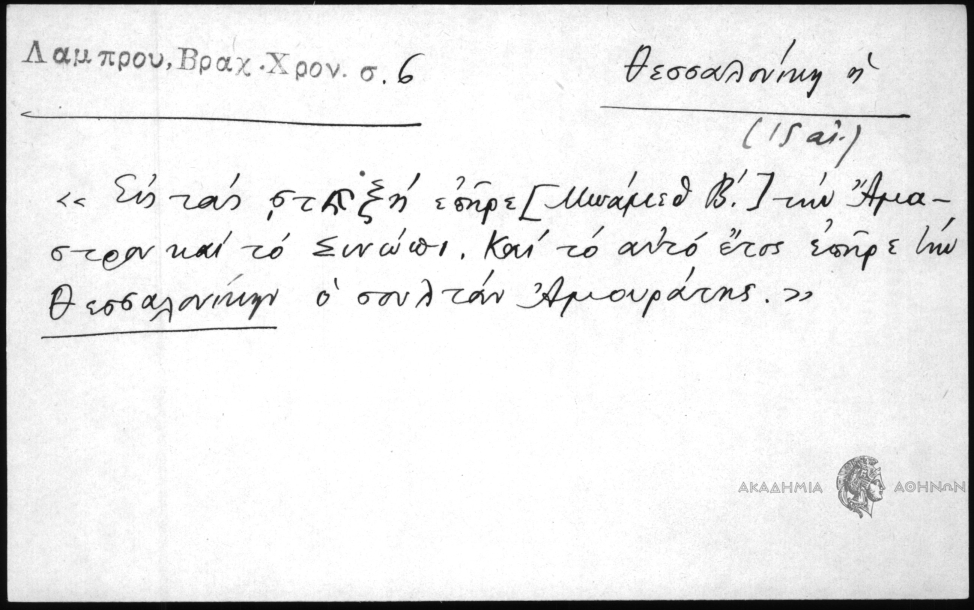 Λαμπρου, Βραχ. Χρον. σ. 6
Θεσσαλονίκη ἡ
(15 αἰ.)
« Εἰς τάς ͵ϛτ ξή ἐπῆρε [Μωάμεθ Β΄.] τήν Ἄμα-
στρον καί τό Σινώπι. Καί τό αὐτό ἔτος ἐπῆρε τήν
Θεσσαλονίκην ὁ σουλτάν Ἀμουράτης. »
ΑΚΑΔΗΜΙΑ ΑΘΗΝΩΝ